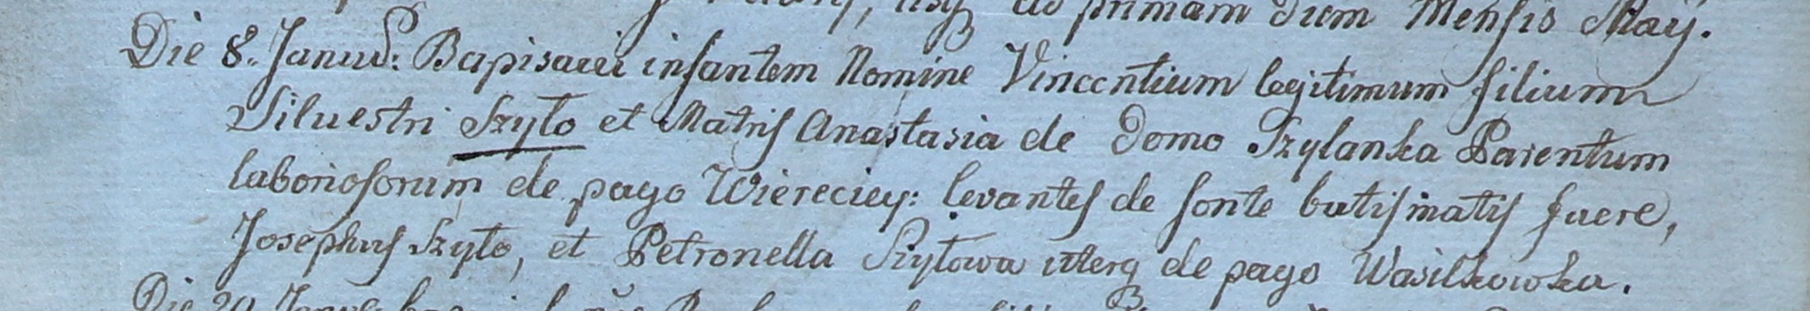 ad primam diem Mensis Maij.
Die 8. Januar: Bapisavi infantem Nomine Vincentium legitimum filium
Siluestri Szyło et Matris Anastasia de Domo Szylanka Parentum
laboriosorum de pago Wiereciey: levantes de fonte batismatis fuere,
Josephus Szyło, et Petronella Szyłowa uterq de pago Wasilkowka.
Die 20